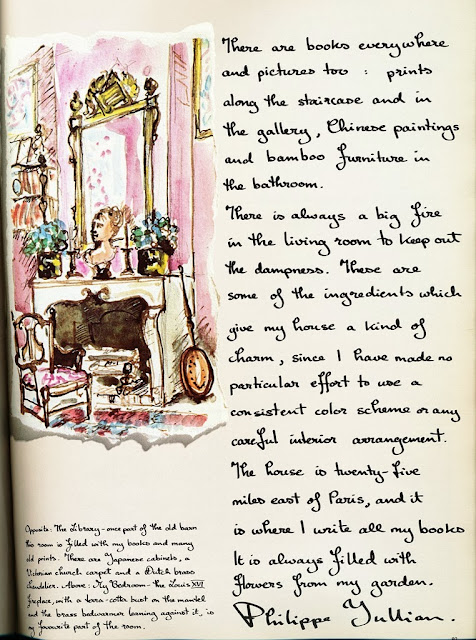 There are books everywhere
and pictures too : prints
along the staircase and in
the gallery, Chinese paintings
and bamboo furniture in
the bathroom.
There is always a big fire
in the living room to keep out
the dampness. These are
some of the ingredients which
give my house a kind of
charm, since I have made no
particular effort to use a
consistent color scheme or any
careful interior arrangement.
The house is twenty-five
miles east of Paris, and it
is where I write all my books
It is always filled with
flowers from my garden.
Philippe Jullian.
Opposite: The Library - once part of the old barn
this room is filled with my books and many
old prints. There are Japanese cabinets, a
Victorian church carpet and a Dutch brass
chandelier. Above: My Bedroom - the Louis XVI
fireplace, with a terra-cotta bust on the mantel
and the brass bedwarmer leaning against it, is
my favourite part of the room.